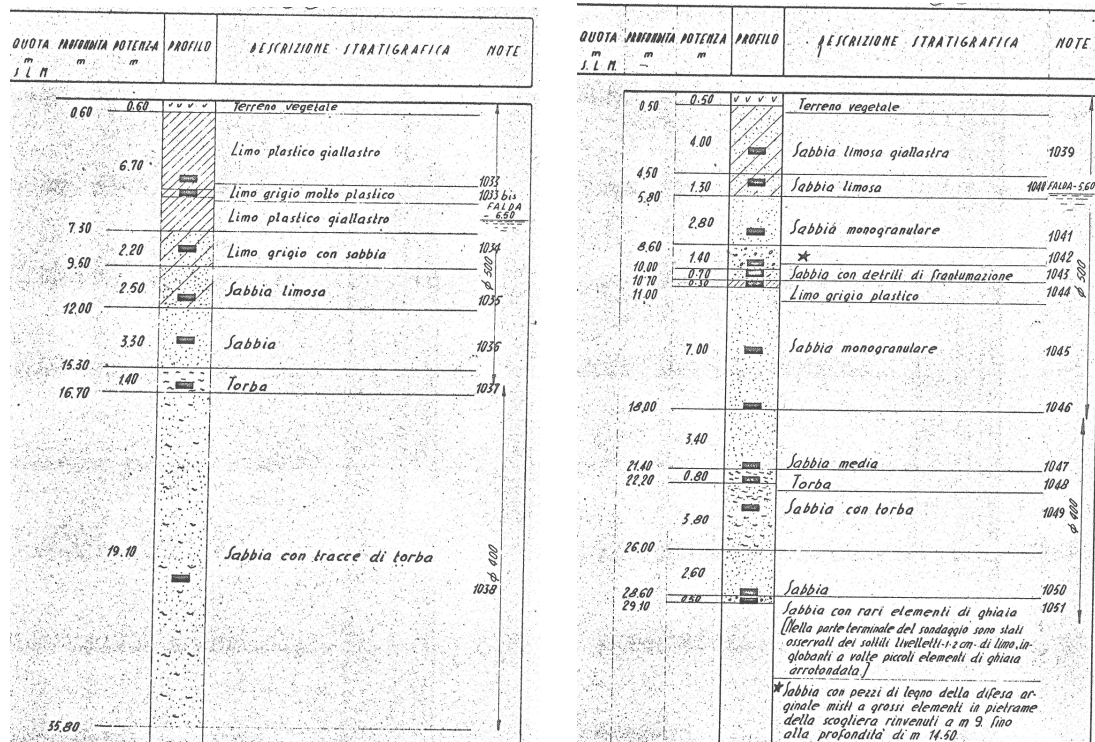 QUOTA m S L M PROFONDITA m POTENZA m PROFILO DESCRIZIONE STRATIGRAFICA NOTE
0.60 0.60 Terreno vegetale
6.70 Limo plastico giallastro
1033
Limo grigio molto plastico 1033 bis
FALDA
- 6.50
Limo plastico giallastro
7.30
2.20 Limo grigio con sabbia 1034
9.60
ϕ 500
2.50 Sabbia limosa 1035
12.00
3.30 Sabbia 1036
15.30
1.40 Torba 1037
16.70
19.10 Sabbia con tracce di torba
ϕ 400
1038
35.80
QUOTA m S. L. M. PROFONDITA m POTENZA m PROFILO DESCRIZIONE STRATIGRAFICA NOTE
0.50 0.50 Terreno vegetale
4.00 Sabbia limosa giallastra 1039
4.50
1.30 Sabbia limosa 1040 FALDA-5.60
5.80
2.80 Sabbia monogranulare 1041
8.60
1.40 ★ 1042
10.00
0.70 Sabbia con detriti di frantumazione 1043
10.70
0.30 Limo grigio plastico 1044
11.00
ϕ 500
7.00 Sabbia monogranulare 1045
18.00 1046
3.40
21.40 Sabbia media 1047
22.20 0.80 Torba 1048
3.80 Sabbia con torba 1049
ϕ 400
26.00
2.60
28.60 Sabbia 1050
29.10 0.50 Sabbia con rari elementi di ghiaia 1051
[Nella parte terminale del sondaggio sono stati
osservati dei sottili livelletti-1-2 cm- di limo, in-
globanti a volte piccoli elementi di ghiaia
arrotondata]
★ Sabbia con pezzi di legno della difesa ar-
ginale misti a grossi elementi in pietrame
della scogliera rinvenuti a m 9. fino
alla profondità di m 14.50